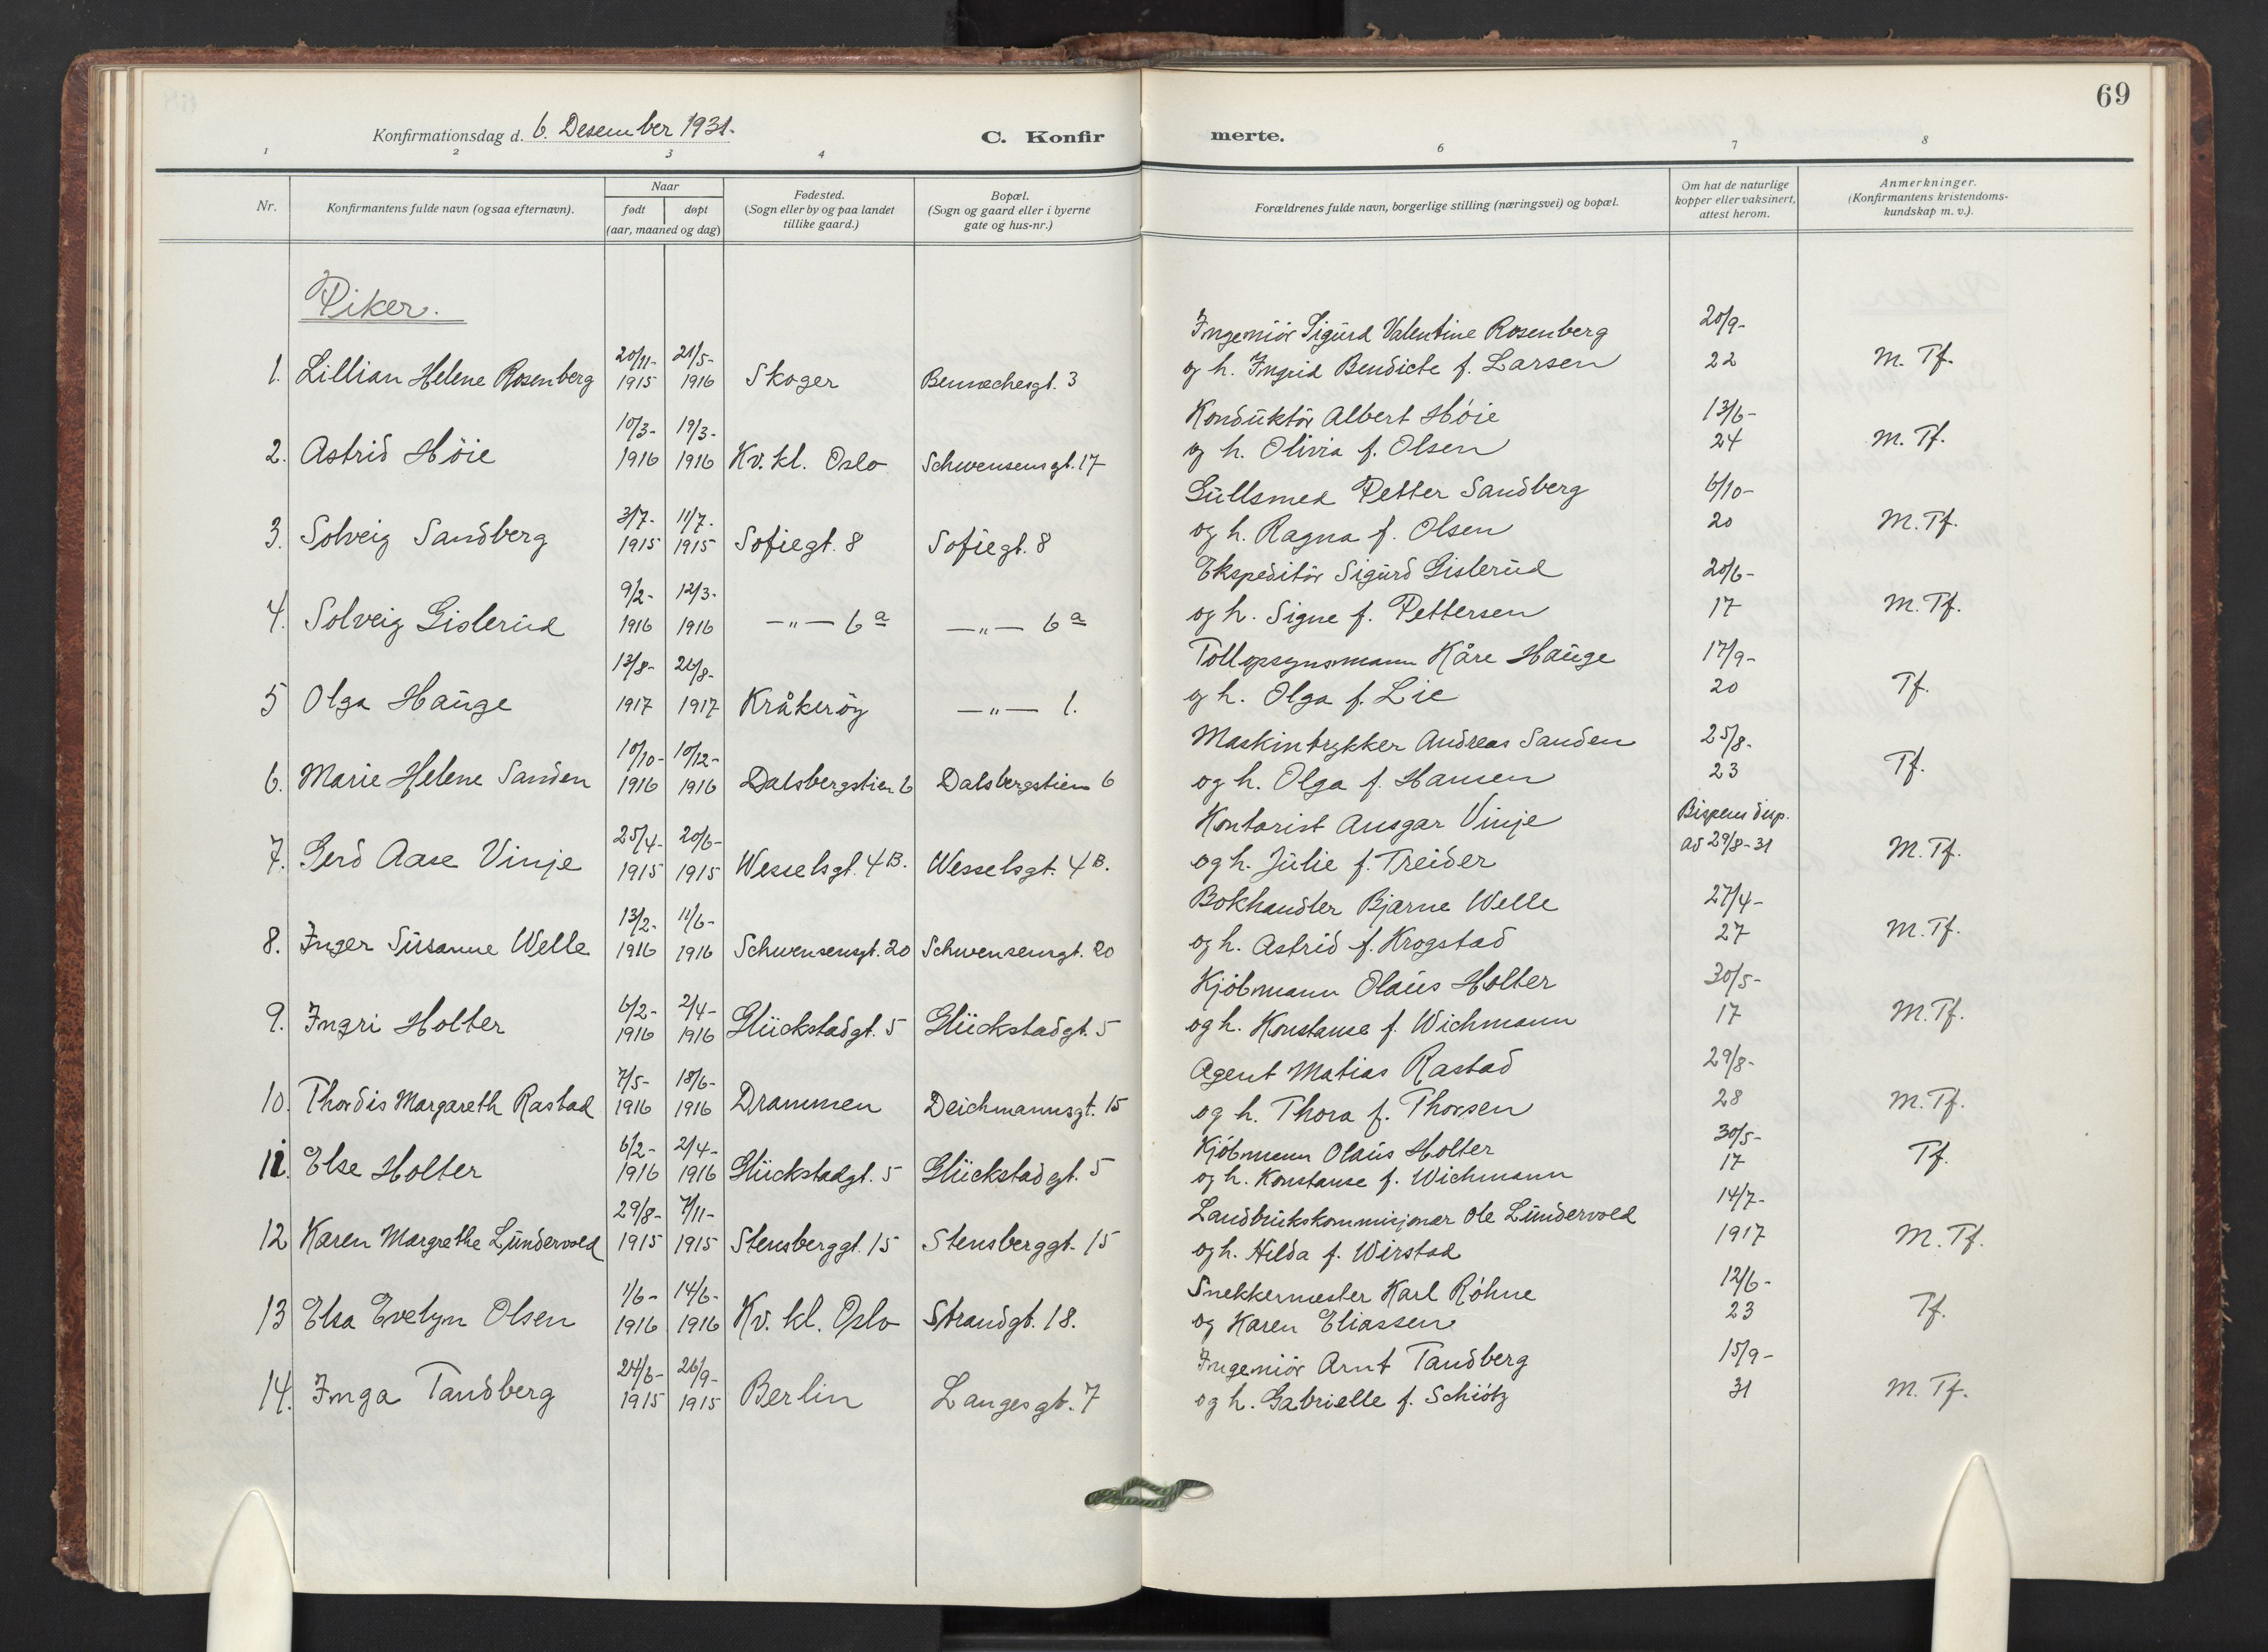 69
Konfirmationsdag d. 6. Desember 1931.
C. Konfirmerte.
1 2 3 4 6 7 8
Nr.
Konfirmantens fulde navn (ogsaa efternavn).
Naar
født døpt
(aar, maaned og dag)
Fødested.
(Sogn eller by og paa landet
tillike gaard.)
Bopæl.
(Sogn og gaard eller i byerne
gate og hus-nr.)
Forældrenes fulde navn, borgerlige stilling (næringsvei) og bopæl.
Om hat de naturlige
kopper eller vaksinert,
attest herom.
Anmerkninger.
(Konfirmantens kristendoms-
kundskap m. v.).
Piker.
Ingeniör Sigurd Valentine Rosenberg 20/9-
20/11- 21/5-
1. Lillian Helene Rosenberg 1915 1916 Skoger Bennechesgt. 3 og h. Ingrid Bendicte f. Larsen 22 M. Tf.
10/3- 19/3- Konduktör Albert Höie 13/6-
2. Astrid Höie 1916 1916 Kv. kl. Oslo Schwensensgt. 17 og h. Olivia f. Olsen 24 M. Tf.
3/7- 11/7- Gullsmed Petter Sandberg 6/10-
3. Solveig Sandberg 1915 1915 Sofiegt. 8 Sofiegt. 8 og h. Ragna f. Olsen 20 M. Tf.
9/2- 12/3- Ekspeditör Sigurd Gislerud 20/6-
4. Solveig Gislerud 1916 1916 —"— 6 a —"— 6 a og h. Signe f. Pettersen 17 M. Tf.
13/8- 26/8- Tollopsynsmann Kåre Hauge 17/9-
5 Olga Hauge 1917 1917 Kråkeröy —"— 1. og h. Olga f. Lie 20 Tf.
10/10- 10/12- Maskintrykker Andreas Sanden 25/8-
6. Marie Helene Sanden 1916 1916 Dalsbergstien 6 Dalsbergstien 6 og h. Olga f. Hansen 23 Tf.
25/4- 20/6- Kontorist Ansgar Vinje Bispens disp.
7. Gerd Aase Vinje 1915 1915 Wesselsgt. 4 B. Wesselsgt. 4 B. og h. Julie f. Treider as 29/8-31 M. Tf.
13/2- 11/6- Bokhandler Bjarne Welle 27/4-
8. Inger Susanne Welle 1916 1916 Schwensensgt. 20 Schwensensgt. 20 og h. Astrid f. Krogstad 27 M. Tf.
6/2- 2/4- Kjöbmann Olaus Holter 30/5-
9. Ingri Holter 1916 1916 Glückstadgt. 5 Glückstadgt. 5 og h. Konstanse f. Wichmann 17 M. Tf.
7/5- 18/6- Agent Matias Rastad 29/8-
10. Thordis Margareth Rastad 1916 1916 Drammen Deichmannsgt. 15 og h. Thora f. Thorsen 28 M. Tf.
6/2- 2/4- Kjöbmann Olaus Holter 30/5-
11. Else Holter 1916 1916 Glückstadgt. 5 Glückstadgt. 5 og h. Konstanse f. Wichmann 17 Tf.
29/8- 7/11- Landbrukskommisjonær Ole Lundervold 14/7-
12 Karen Margrethe Lundervold 1915 1915 Stensberggt. 15 Stensberggt. 15 og h. Hilda f. Wirstad 1917 M. Tf.
1/6- 14/6- Snekkermester Karl Röhne 12/6-
13 Elsa Evelyn Olsen 1916 1916 Kv. kl. Oslo Strandgt. 18. og Karen Eliassen 23 Tf.
24/6- 26/9- Ingeniör Arnt Tandberg 15/9-
14. Inga Tandberg 1915 1915 Berlin Langesgt. 7 og h. Gabrielle f. Schiötz 31 M. Tf.